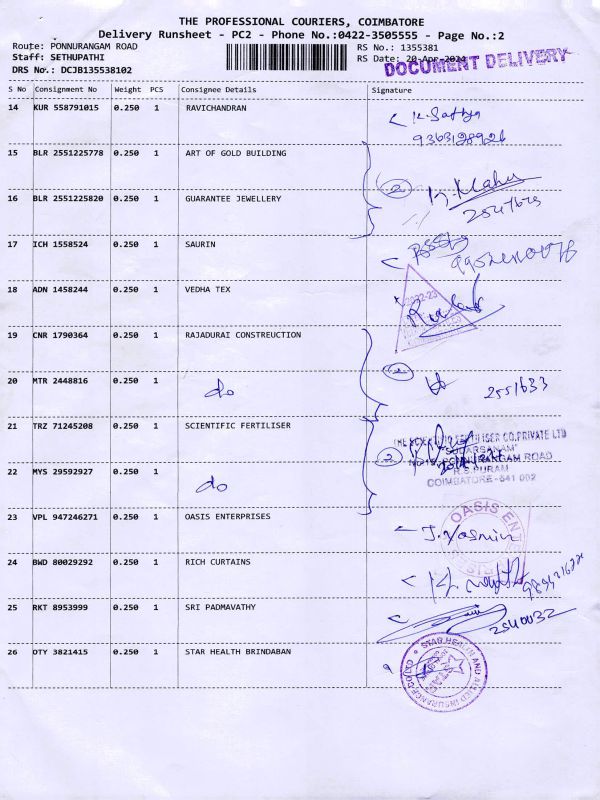 THE PROFESSIONAL COURIERS, COIMBATORE
Delivery Runsheet - PC2 - Phone No.:0422-3505555 - Page No.:2
Route: PONNURANGAM ROAD
Staff: SETHUPATHI
DRS No.: DCJB135538102
RS No.: 1355381
RS Date: 20-Apr-2024
DOCUMENT DELIVERY
S No Consignment No Weight PCS Consignee Details Signature
14 KUR 558791015 0.250 1 RAVICHANDRAN
K. Sathya
15 BLR 2551225778 0.250 1 ART OF GOLD BUILDING
2
16 BLR 2551225820 0.250 1 GUARANTEE JEWELLERY
17 ICH 1558524 0.250 1 SAURIN
18 ADN 1458244 0.250 1 VEDHA TEX
2022-23
19 CNR 1790364 0.250 1 RAJADURAI CONSTREUCTION
2
20 MTR 2448816 0.250 1 do 2551633
21 TRZ 71245208 0.250 1 SCIENTIFIC FERTILISER
THE SCIENTIFIC FERTILISER CO.PRIVATE LTD
"SUDARSANAM"
2
PONNURANGAM ROAD
R.S.PURAM
COIMBATORE - 641 002
22 MYS 29592927 0.250 1 do
23 VPL 947246271 0.250 1 OASIS ENTERPRISES
OASIS ENTE
J. Yasmin
24 BWD 80029292 0.250 1 RICH CURTAINS
25 RKT 8953999 0.250 1 SRI PADMAVATHY
2540032
26 OTY 3821415 0.250 1 STAR HEALTH BRINDABAN
STAR HEALTH AND ALLIED INSURANCE CO